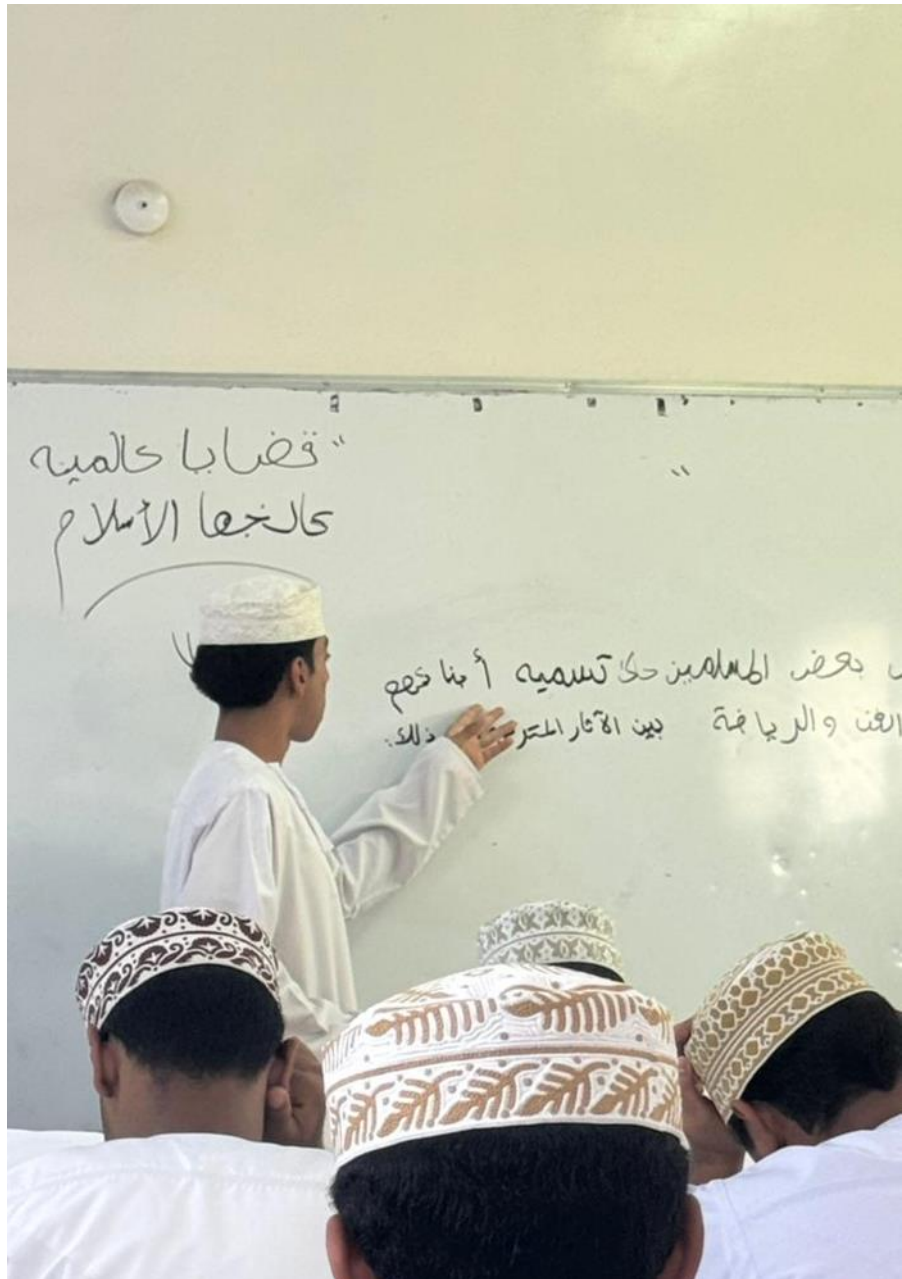 "قضايا عالمية
عالجها الإسلام"
بعض المسلمين على تسمية أبنائهم
الفن والرياضة بين الآثار المتر ذلك.